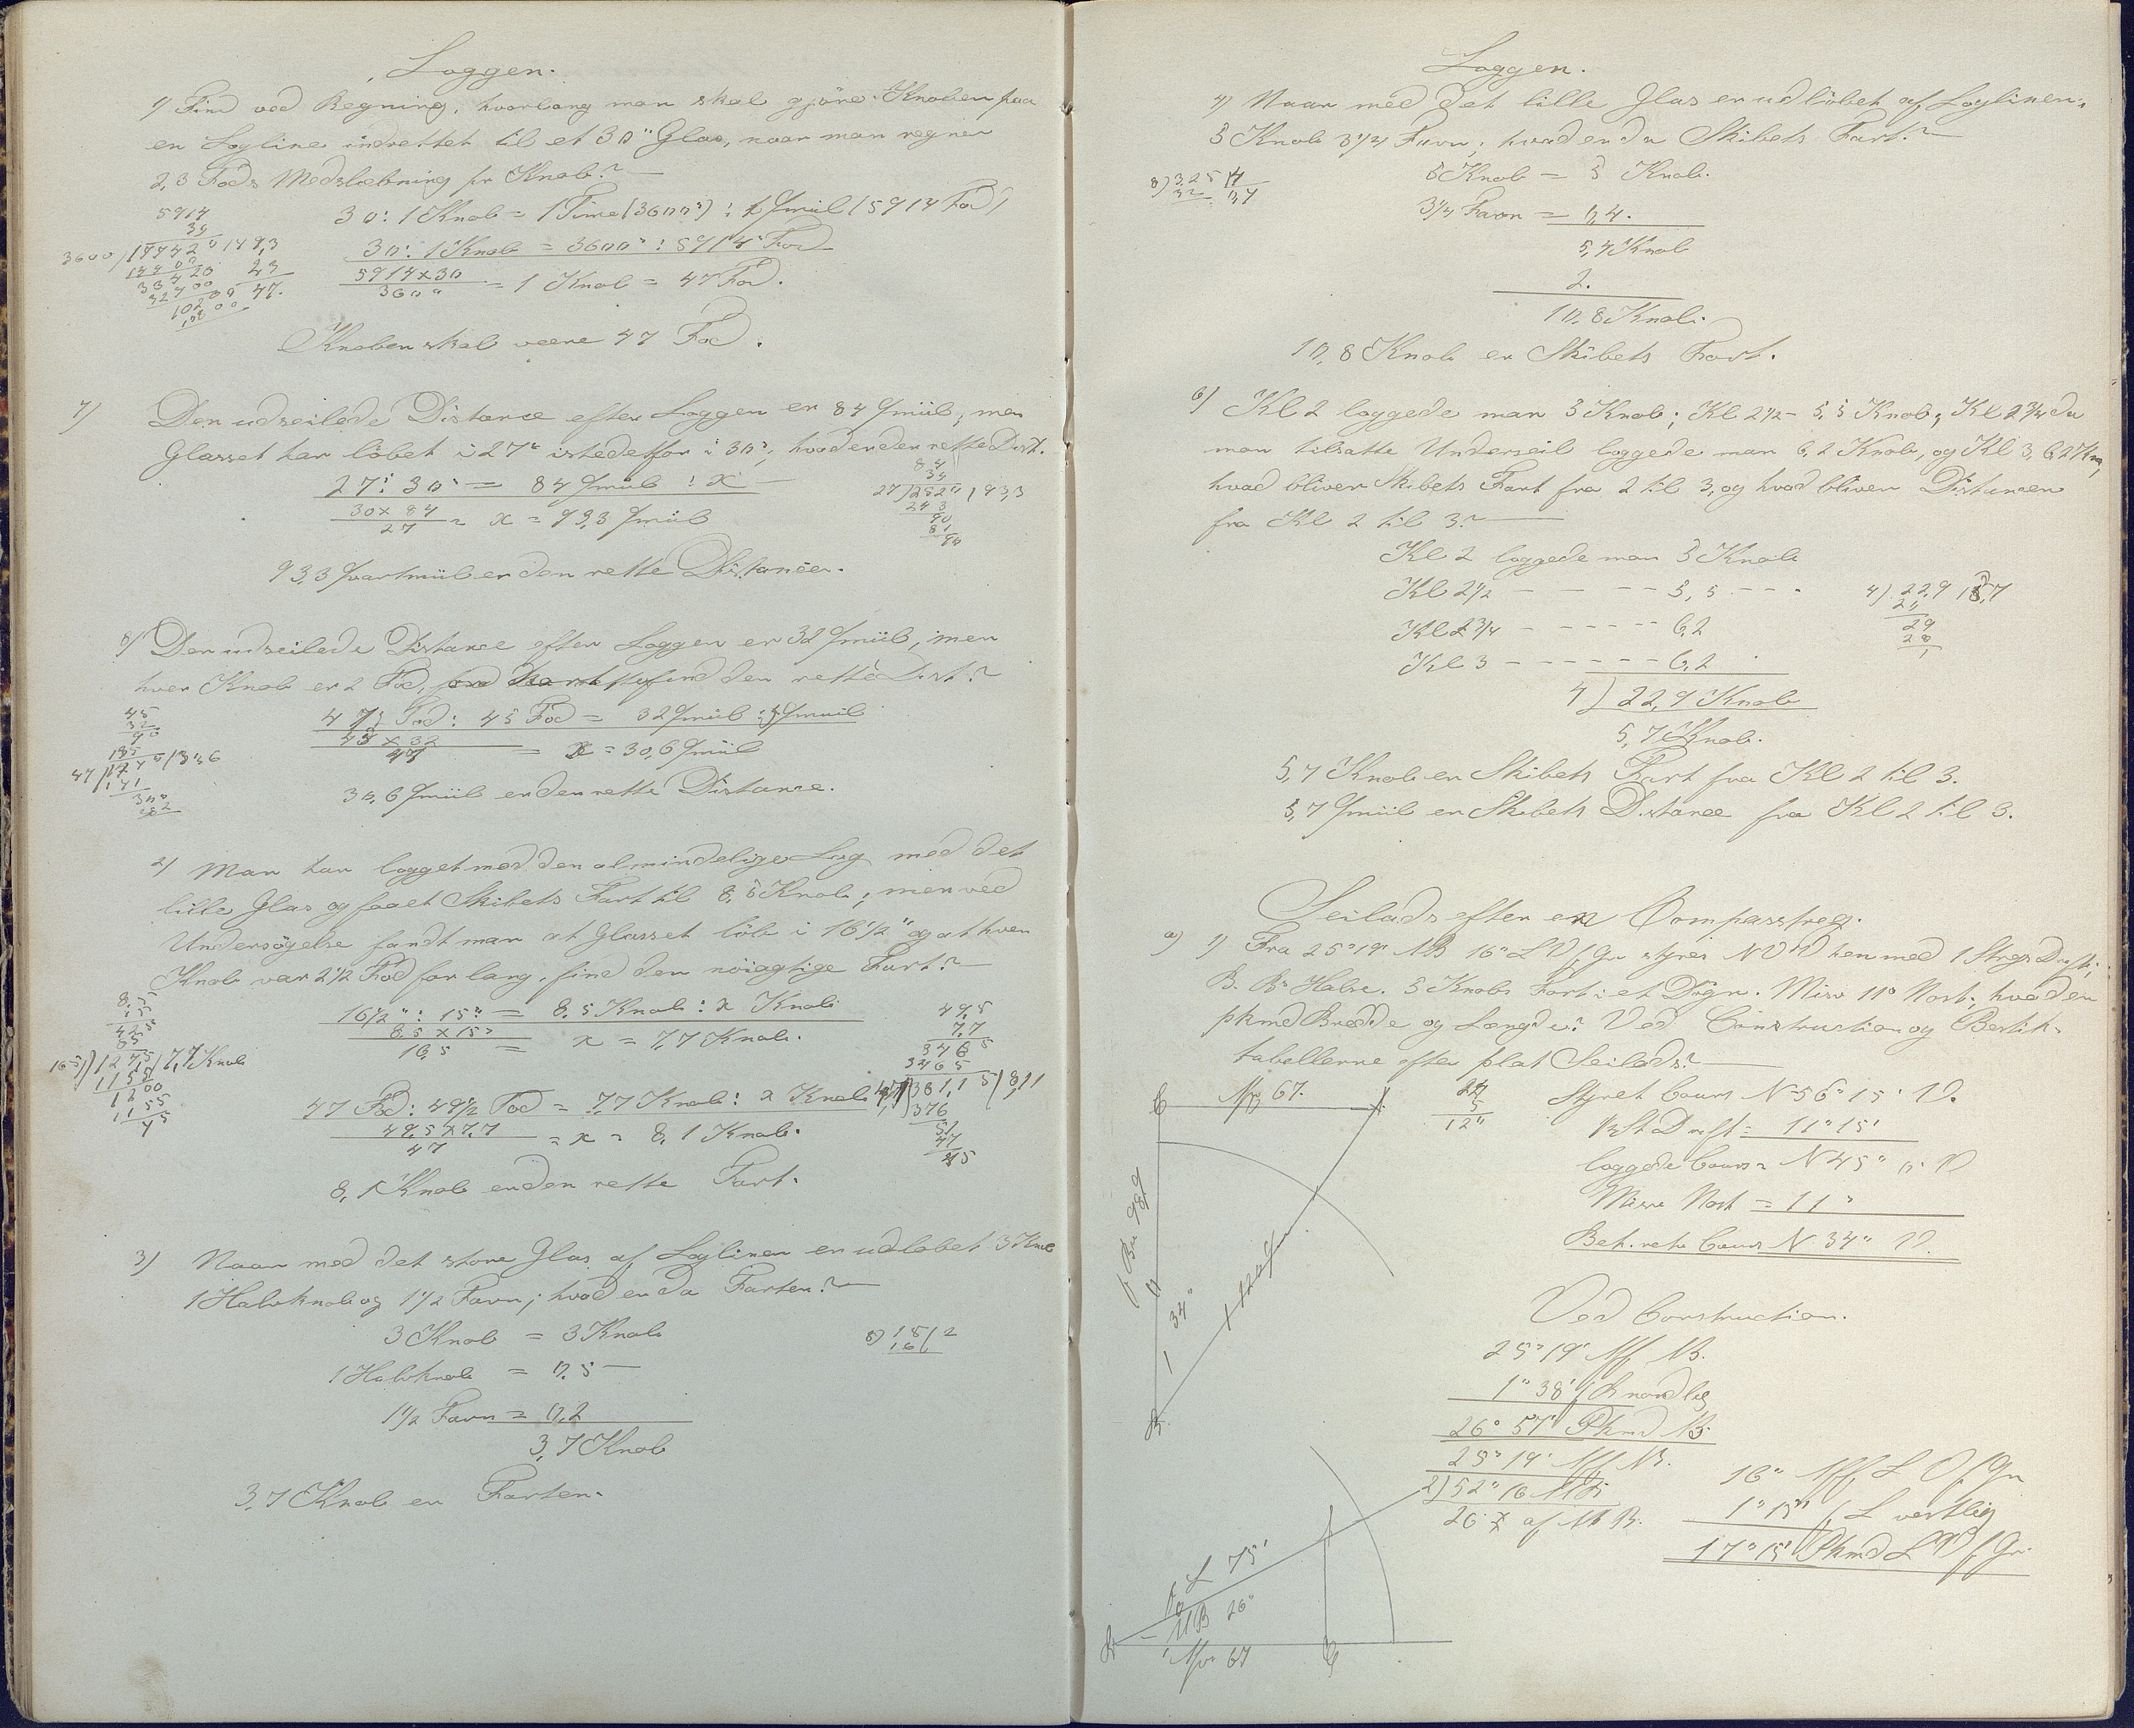 Loggen.
1) Find ved Regning, hvorlang man skal gjöre Knoben paa
en Logline indrettet til et 30" Glas, naar man regner
2,3 Fods Medslæbning pr Knob?
30: 1 Knob = 1 Time (3600"): 1 Qmiil (5914 Fod)
30: 1 Knob = 3600": 5914 Fod
5914×30
3600 = 1 Knob = 47 Fod.
Knoben skal være 47 Fod.
7) Den udseilede Distance efter Loggen er 84 Qmiil, men
Glasset har löbet i 27" istedetfor i 30", hvad er den rette Dist.
27: 30 = 84 Qmiil : x
30×84
27 = x = 93,3 Qmiil
27)2520/93,3
243
90
81
90
93,3 Qvartmiil er den rette Distancen.
8) Den udseilede Distance efter Loggen er 32 Qmiil, men
hver Knob er 2 Fod, find den rette Dist?
47 Fod: 45 Fod = 32 Qmiil : x Qmiil
45×32
47 = x = 30,6 Qmiil
30,6 Qmiil er den rette Distance.
2) Man har logget med den almindelige Log med det
lille Glas og faaet Skibets Fart til 8,5 Knob, men ved
Undersögelse fandt man at Glasset löb i 16½" og at hver
Knob var 2½ Fod for lang, find den nöiagtige Fart?
16½": 15" = 8,5 Knob: x Knob
8,5×15
16,5 = x = 7,7 Knob.
49,5
7,7
3465
3465
47)381,15/8,11
376
51
47
45
47 Fod: 49½ Fod = 7,7 Knob: x Knob
49,5×7,7
47 = x = 8,1 Knob.
8,1 Knob er den rette Fart.
3) Naar med det store Glas af Loglinen er udlöbet 3 Knob
1 Halvknob og 1½ Favn; hvad er da Farten?
3 Knob = 3 Knob
8)18/2
16
1 Halvknob = 0,5
1½ Favn = 0,2
3,7 Knob
3,7 Knob er Farten.
Loggen.
4) Naar med det lille Glas er udlöbet af Loglinen
5 Knob 3¼ Favn; hvad er da Skibets Fart?
5 Knob = 5 Knob.
8)3,25/
32 0,4
3¼ Favn = 0,4.
5,4 Knob
2.
10,8 Knob.
10,8 Knob er Skibets Fart.
6) Kl 2 loggede man 5 Knob; Kl 2½ - 5,5 Knob; Kl 2¾ da
man tilsatte Underseil loggede man 6,2 Knob, og Kl 3, 6,2 Knob,
hvad bliver Skibets Fart fra 2 til 3, og hvad bliver Distancen
fra Kl 2 til 3?
Kl 2 loggede man 5 Knob
Kl 2½ - - - - - 5,5 - - -
4)22,9/5,7
20
29
28
1
Kl 2¾ - - - - - - 6,2
Kl 3 - - - - - - 6,2
4) 22,9 Knob
5,7 Knob.
5,7 Knob er Skibets Fart fra Kl 2 til 3.
5,7 Qmiil er Skibets Distance fra Kl 2 til 3.
Seilads efter en Compasstreg.
a) 1) Fra 25°19' NB 16° LV f Gr styres NVV hen med 1 Stregs Drift,
B. B. Halse. 5 Knobs Fart i et Dögn. Misv 11° Vest, hvad er
pkmd Bredde og Længde? Ved Construction og Bestik-
tabellerne efter plat Seilads?
C Afv 67. A
24
5
120
Styret Cours N 56° 15' V.
1 St Drift = 11° 15'
loggede Cours = N 45° 0' V
Misv Vest = 11°
Beh. retv Cours N 34° V.
34°
B
Ved Construction.
25° 19' Aff NB.
1° 38' f B nordlig
26° 57' Pkmd NB
25° 19' Aff NB.
2) 52° 16'
26° af M B.
16° Aff L V f Gr
1° 15' f L vestlig
17° 15' Pkmd L V f Gr.
f L 75'
MB 26°
Afv 67
C